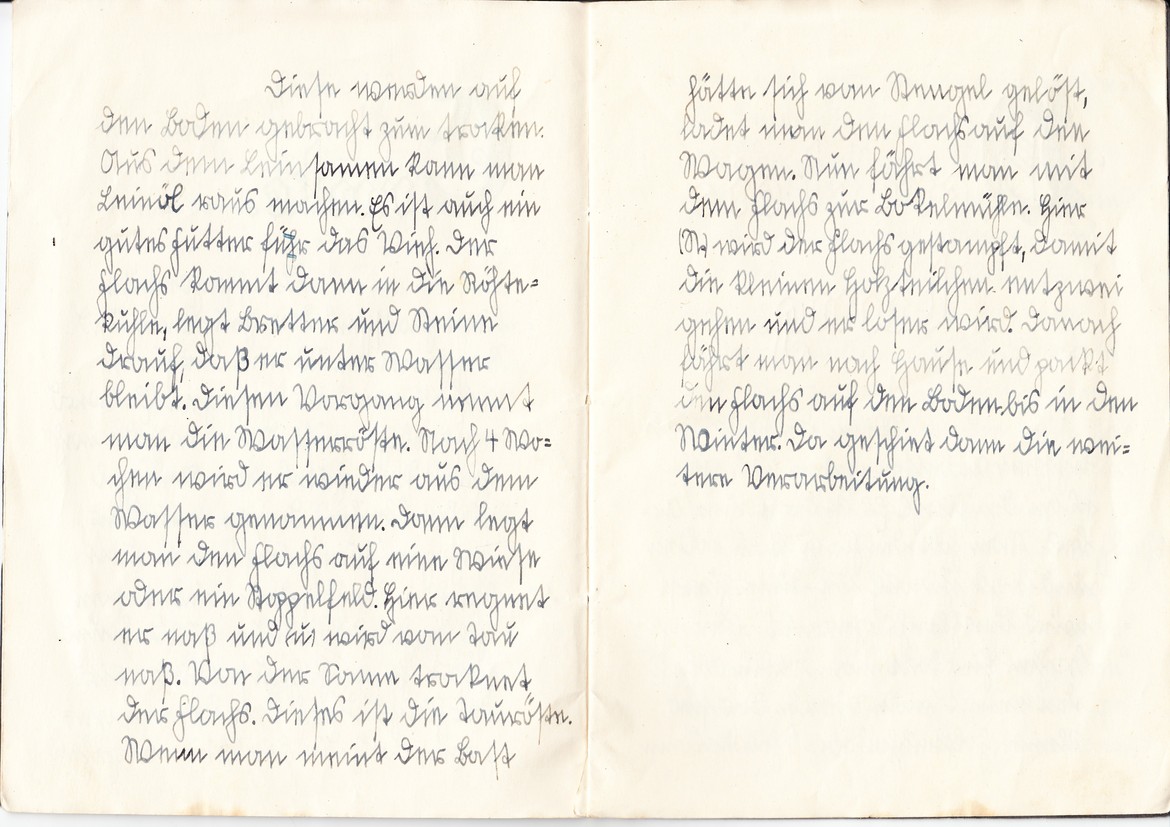 Diese werden auf
den Boden gebracht zum trocken.
Aus dem Leinsamen kann man
Leinöl raus machen. Es ist auch ein
gutes Futter führ das Vieh. Der
Flachs kommt dann in die Röhte=
kuhle, legt Bretter und Steine
drauf, daß er unter Wasser
bleibt. Diesen Vorgang nennt
man die Wasserröste. Nach 4 Wo=
chen wird er wieder aus dem
Wasser genommen. Dann legt
man den Flachs auf eine Wiese
oder ein Stoppelfeld. Hier regnet
er naß und wird vom Tau
naß. Von der Sonne trocknet
der Flachs. Dieses ist die Tauröste.
Wenn man meint der Bast
hätte sich vom Stengel gelöst,
ladet man den Flachs auf den
Wagen. Nun fährt man mit
dem Flachs zur Bokelmühle. Hier
wird der Flachs gestampft, damit
die kleinen Holzteilchen entzwei
gehen und er loser wird. Danach
fährt man nach Hause und packt
den Flachs auf den Boden bis in den
Winter. Da geschiet dann die wei=
tere Verarbeitung.